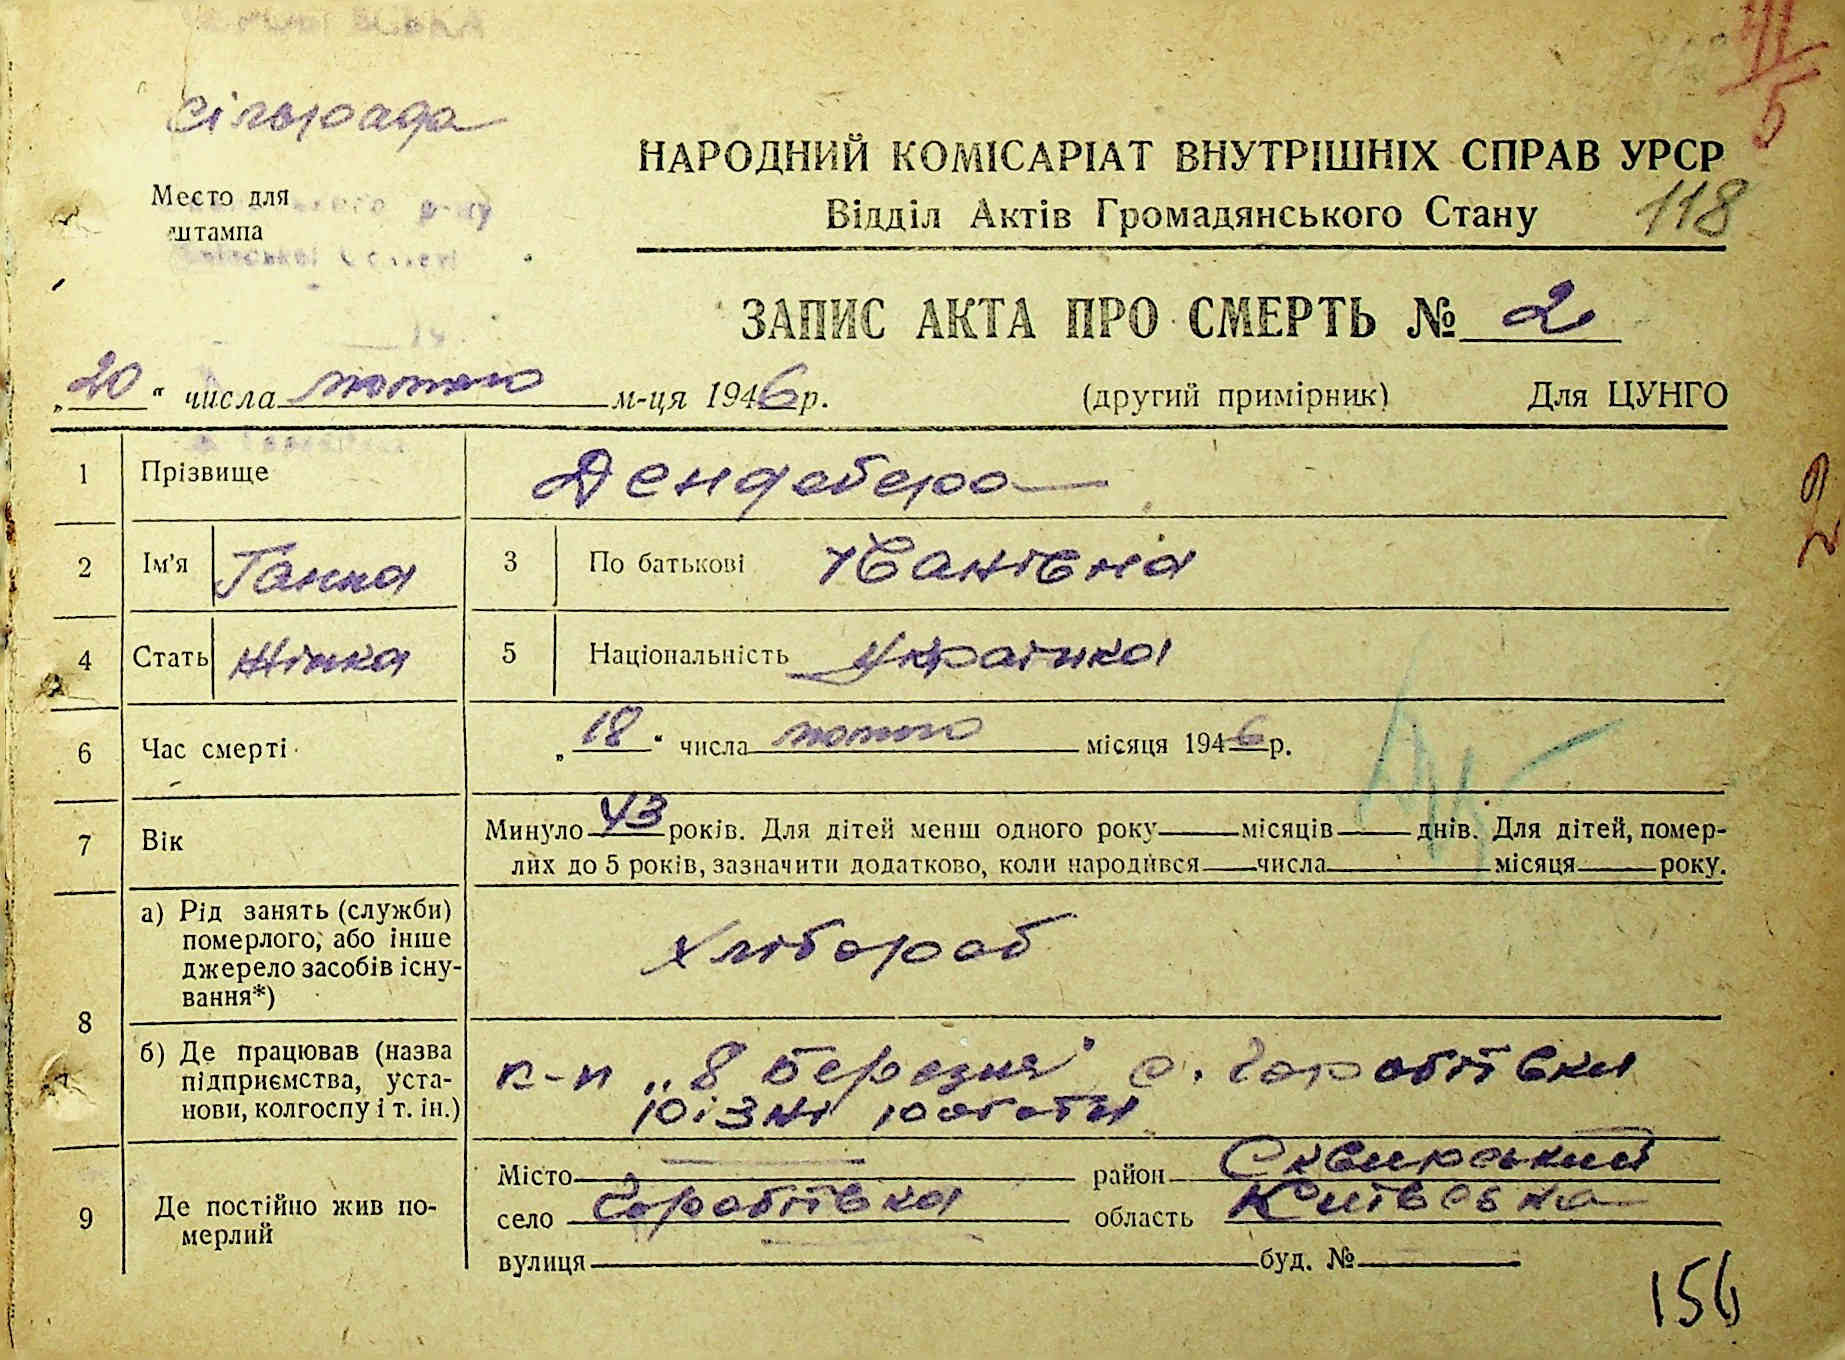 сільрада
Место для
штампа
р-ну
НАРОДНИЙ КОМІСАРІАТ ВНУТРІШНІХ СПРАВ УРСР
Відділ Актів Громадянського Стану
118
ЗАПИС АКТА ПРО СМЕРТЬ № 2
„20“ числа лютого м-ця 1946 р. (другий примірник) Для ЦУНГО
1 Прізвище Дендебера
2 Ім'я Ганна 3 По батькові Іванівна
4 Стать Жінка 5 Національність Українка
6 Час смерті „18“ числа лютого місяця 1946 р.
7 Вік Минуло 43 років. Для дітей менш одного року місяців днів. Для дітей, помер-
лих до 5 років, зазначити додатково, коли народився числа місяця року.
8 а) Рід занять (служби)
померлого, або інше
джерело засобів існу-
вання*)
Хлібороб
б) Де працював (назва
підприємства, уста-
нови, колгоспу і т. ін.)
к-п „8 березня" с. Горобіївка
різні роботи
9 Де постійно жив по-
мерлий
Місто район Сквирський
село Горобіївка область Київська
вулиця буд. №
156
2